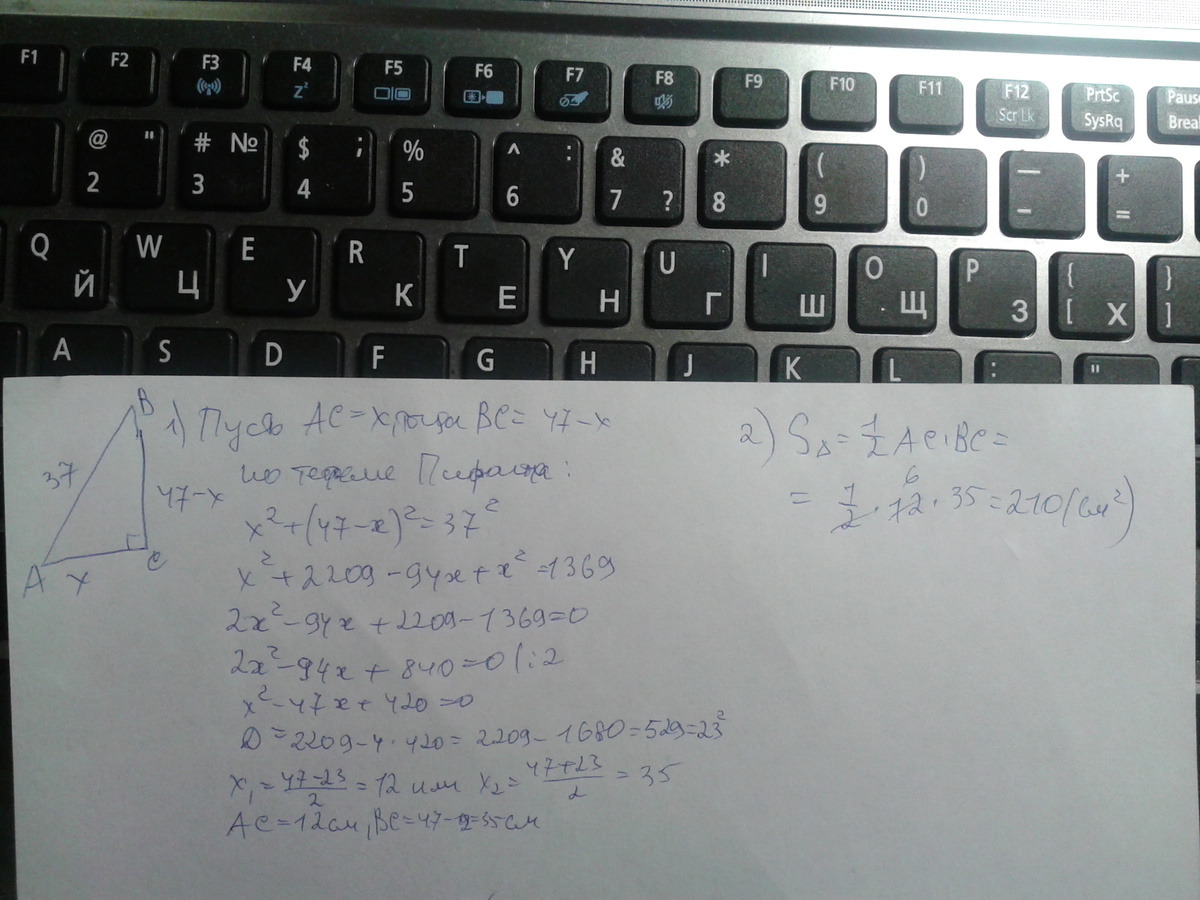 F1 F2 F3 F4 F5 F6 F7 F8 F9 F10 F11 F12 PrtSc Pause
Zz Scr Lk SysRq Break
@ " # № $ ; % ^ : & * ( ) — +
2 3 4 5 6 7 ? 8 9 0 - =
Q W E R T Y U I O P { }
Й Ц У К Е Н Г Ш Щ З [ Х ]
A S D F G H J K L : "
B
37
47-x
A x C
1) Пусть AC=x, тогда BC= 47-x
по теореме Пифагора:
x²+(47-x)²=37²
x²+2209-94x+x²=1369
2x²-94x+2209-1369=0
2x²-94x+840=0 |:2
x²-47x+420=0
D=2209-4·420=2209-1680=529=23²
x₁=(47-23)/2=12 или x₂=(47+23)/2=35
AC=12см, BC=47-12=35см
2) S△=1/2 AC·BC=
6
=1/2·12·35=210(см²)